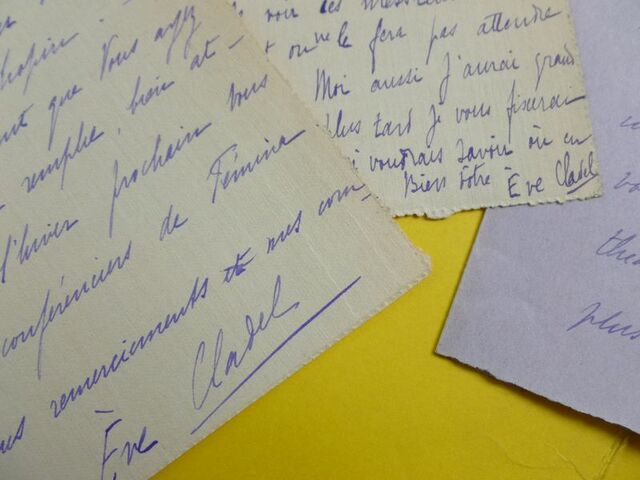 Chopin.
que Vous ayez
remplie, bien at-
d'hiver prochain vous
conférenciers de Fémina
remerciements et mes com-
Ève Cladel
voir les
le fera pas attendre
Moi aussi j'aurai grand
plus tard je vous fixerai
voudrais savoir où en
Bien vôtre - Ève Cladel
plus